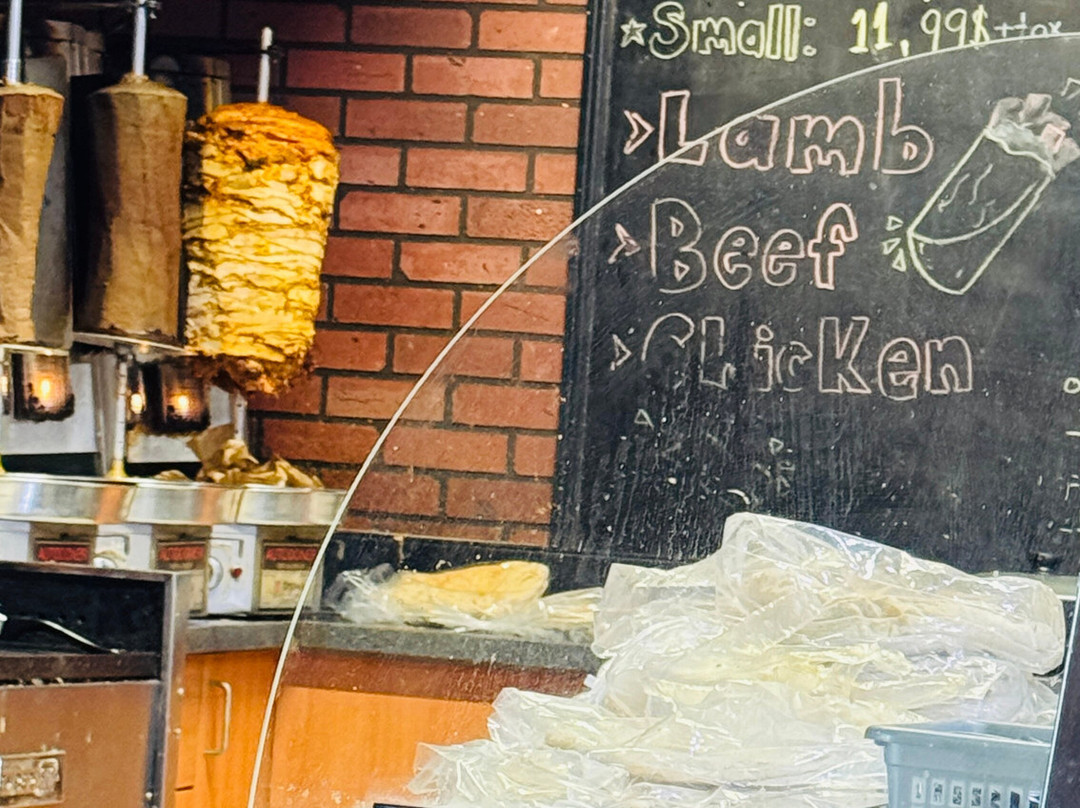 ☆Small: 11,99$+tax
>Lamb
>Beef
>Chicken